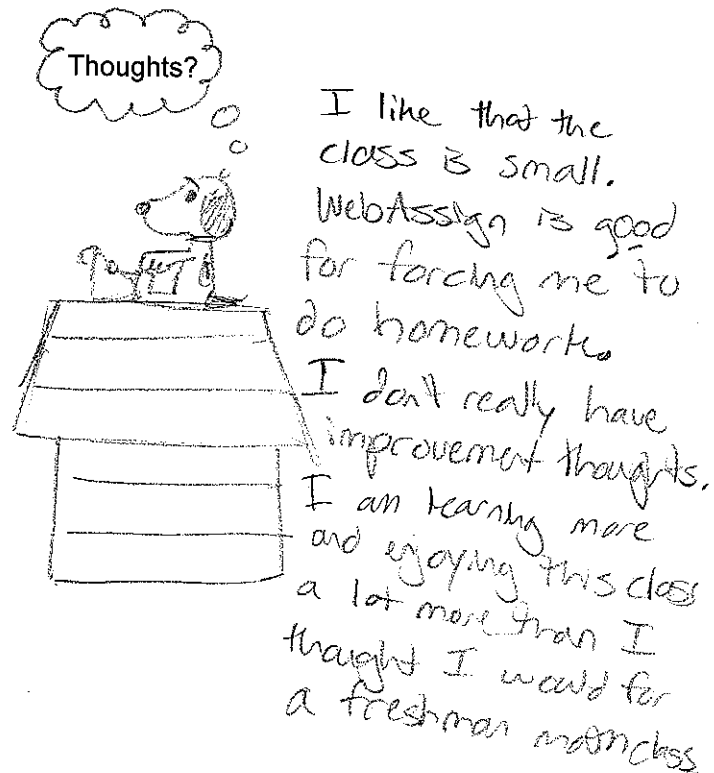 Thoughts?
I like that the
class is small.
WebAssign is good
for forcing me to
do homework.
I don't really have
improvement thoughts.
I am learning more
and enjoying this class
a lot more than I
thought I would for
a freshman math class